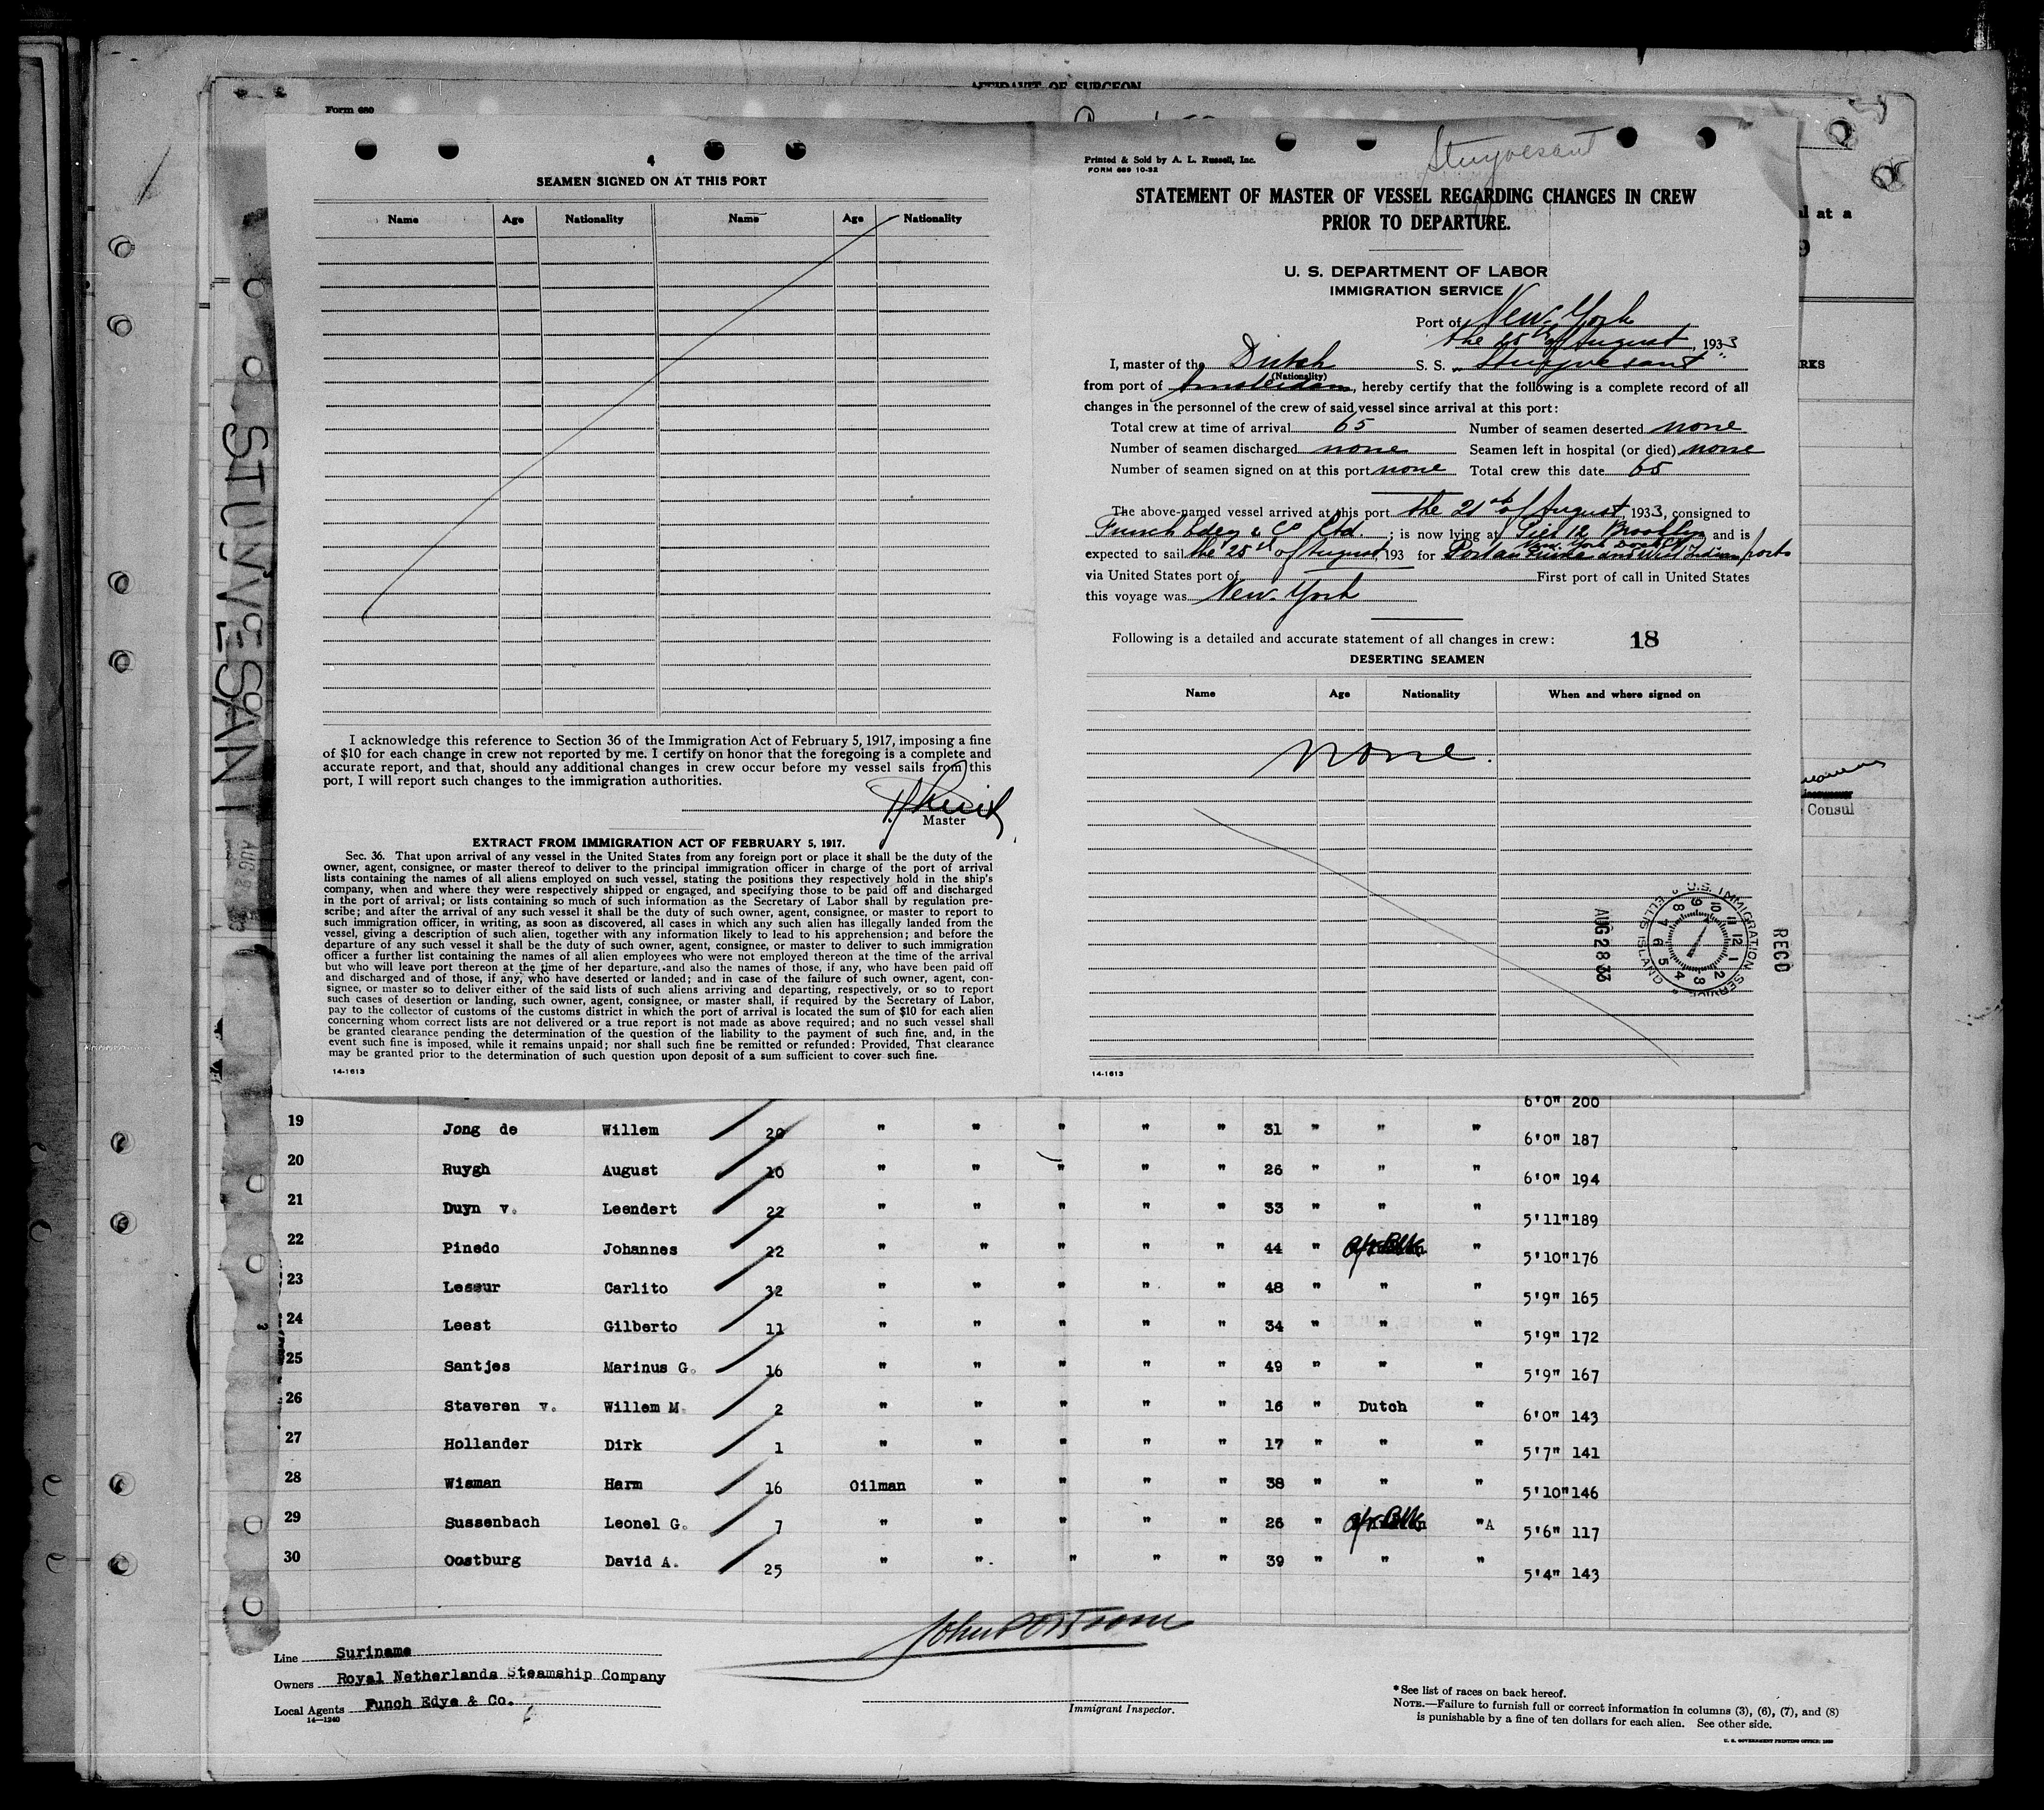 AFFIDAVIT OF SURGEON
Form 680
4
SEAMEN SIGNED ON AT THIS PORT
Name Age Nationality Name Age Nationality
I acknowledge this reference to Section 36 of the Immigration Act of February 5, 1917, imposing a fine
of $10 for each change in crew not reported by me. I certify on honor that the foregoing is a complete and
accurate report, and that, should any additional changes in crew occur before my vessel sails from this
port, I will report such changes to the immigration authorities.
Master
EXTRACT FROM IMMIGRATION ACT OF FEBRUARY 5, 1917.
Sec. 36. That upon arrival of any vessel in the United States from any foreign port or place it shall be the duty of the
owner, agent, consignee, or master thereof to deliver to the principal immigration officer in charge of the port of arrival
lists containing the names of all aliens employed on such vessel, stating the positions they respectively hold in the ship's
company, when and where they were respectively shipped or engaged, and specifying those to be paid off and discharged
in the port of arrival; or lists containing so much of such information as the Secretary of Labor shall by regulation pre-
scribe; and after the arrival of any such vessel it shall be the duty of such owner, agent, consignee, or master to report to
such immigration officer, in writing, as soon as discovered, all cases in which any such alien has illegally landed from the
vessel, giving a description of such alien, together with any information likely to lead to his apprehension; and before the
departure of any such vessel it shall be the duty of such owner, agent, consignee, or master to deliver to such immigration
officer a further list containing the names of all alien employees who were not employed thereon at the time of the arrival
but who will leave port thereon at the time of her departure, and also the names of those, if any, who have been paid off
and discharged and of those, if any, who have deserted or landed; and in case of the failure of such owner, agent, con-
signee, or master so to deliver either of the said lists of such aliens arriving and departing, respectively, or so to report
such cases of desertion or landing, such owner, agent, consignee, or master shall, if required by the Secretary of Labor,
pay to the collector of customs of the customs district in which the port of arrival is located the sum of $10 for each alien
concerning whom correct lists are not delivered or a true report is not made as above required; and no such vessel shall
be granted clearance pending the determination of the question of the liability to the payment of such fine, and, in the
event such fine is imposed, while it remains unpaid; nor shall such fine be remitted or refunded: Provided, That clearance
may be granted prior to the determination of such question upon deposit of a sum sufficient to cover such fine.
14-1613
Stuyvesant
Printed & Sold by A. L. Russell, Inc.
FORM 689 10-32
STATEMENT OF MASTER OF VESSEL REGARDING CHANGES IN CREW
PRIOR TO DEPARTURE.
U. S. DEPARTMENT OF LABOR
IMMIGRATION SERVICE
Port of New-York
the 25th of August, 1933
I, master of the Dutch S. S. "Stuyvesant"
(Nationality)
from port of Amsterdam, hereby certify that the following is a complete record of all
changes in the personnel of the crew of said vessel since arrival at this port:
Total crew at time of arrival 65 Number of seamen deserted none
Number of seamen discharged none Seamen left in hospital (or died) none
Number of seamen signed on at this port none Total crew this date 65
The above-named vessel arrived at this port the 21st of August, 1933, consigned to
Funch Edey & Co Ltd.; is now lying at Pier 12 Brooklyn and is
New York Dock
expected to sail the 25th of August, 193 for Port au Prince and West Indian ports
via United States port of First port of call in United States
this voyage was New-York
Following is a detailed and accurate statement of all changes in crew: 18
DESERTING SEAMEN
Name Age Nationality When and where signed on
none.
RECD
U.S. IMMIGRATION SERVICE
ELLIS ISLAND
12 1 2 3 4 5 6 7 8 9 10 11
AUG 28 33
14-1613
STUYVESANT
al at a
9
RKS
Consul
6'0" 200
19 Jong de Willem 20 " " " " " 31 " " " 6'0" 187
20 Ruygh August 10 " " " " " 26 " " " 6'0" 194
21 Duyn v. Leendert 22 " " " " " 33 " " " 5'11" 189
22 Pinedo Johannes 22 " " " " " 44 " Afr Blk " 5'10" 176
23 Lessur Carlito 32 " " " " " 48 " " " 5'9" 165
24 Leest Gilberto 11 " " " " " 34 " " " 5'9" 172
25 Santjes Marinus G. 16 " " " " " 49 " " " 5'9" 167
26 Staveren v. Willem M. 2 " " " " " 16 " Dutch " 6'0" 143
27 Hollander Dirk 1 " " " " " 17 " " " 5'7" 141
28 Wisman Harm 16 Oilman " " " " 38 " " " 5'10" 146
29 Sussenbach Leonel G. 7 " " " " " 26 " Afr Blk "A 5'6" 117
30 Oostburg David A. 25 " " " " " 39 " " " 5'4" 143
Line Suriname
Owners Royal Netherlands Steamship Company
Local Agents Funch Edye & Co.
14-1240
Immigrant Inspector.
*See list of races on back hereof.
NOTE.—Failure to furnish full or correct information in columns (3), (6), (7), and (8)
is punishable by a fine of ten dollars for each alien. See other side.
U. S. GOVERNMENT PRINTING OFFICE: 1930